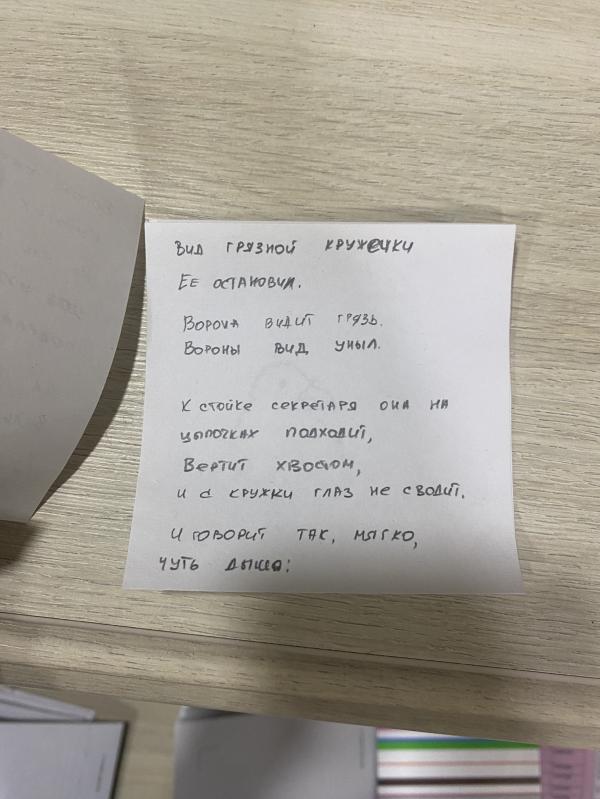 ВИД ГРЯЗНОЙ КРУЖЕЧКИ
ЕЕ ОСТАНОВИЛ.
ВОРОНА ВИДИТ ГРЯЗЬ.
ВОРОНЫ ВИД УНЫЛ.
К СТОЙКЕ СЕКРЕТАРЯ ОНА НА
ЦЫПОЧКАХ ПОДХОДИТ,
ВЕРТИТ ХВОСТОМ,
И С КРУЖКИ ГЛАЗ НЕ СВОДИТ.
И ГОВОРИТ ТАК, МЯГКО,
ЧУТЬ ДЫША: